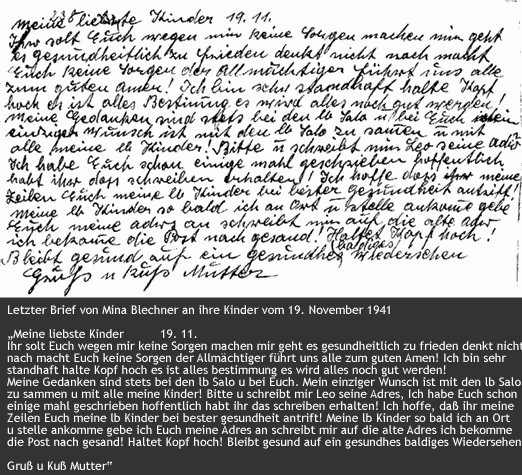 meine liebste Kinder 19. 11.
Ihr solt Euch wegen mir keine Sorgen machen mir geht
es gesundheitlich zu frieden denkt nicht nach macht
Euch keine Sorgen der Allmächtiger führt uns alle
zum guten Amen! Ich bin sehr standhaft halte Kopf
hoch es ist alles Bestimung es wird alles noch gut werden!
Meine Gedanken sind stets bei den lb Salo u bei Euch mein
einziger Wunsch ist mit den lb Salo zu samen u mit
alle meine lb Kinder! Bitte u schreibt mir Leo seine Adrs
Ich habe Euch schon einige mahl geschrieben hoffentlich
habt ihr das schreiben erhalten! Ich hoffe dass ihr meine
Zeilen Euch meine lb Kinder bei bester gesundheit antrift!
Meine lb Kinder so bald ich an Ort u stelle ankome gebe
Euch meine adrs an schreibt mir auf die alte adr
ich bekome die Post nach gesand! Haltet Kopf hoch!
Bleibt gesund auf ein gesundhes baldiges wiedersehen
Gruß u Kuß Mutter
Letzter Brief von Mina Blechner an ihre Kinder vom 19. November 1941
„Meine liebste Kinder 19. 11.
Ihr solt Euch wegen mir keine Sorgen machen mir geht es gesundheitlich zu frieden denkt nicht
nach macht Euch keine Sorgen der Allmächtiger führt uns alle zum guten Amen! Ich bin sehr
standhaft halte Kopf hoch es ist alles bestimmung es wird alles noch gut werden!
Meine Gedanken sind stets bei den lb Salo u bei Euch. Mein einziger Wunsch ist mit den lb Salo
zu sammen u mit alle meine Kinder! Bitte u schreibt mir Leo seine Adres, Ich habe Euch schon
einige mahl geschrieben hoffentlich habt ihr das schreiben erhalten! Ich hoffe, daß ihr meine
Zeilen Euch meine lb Kinder bei bester gesundheit antrift! Meine lb Kinder so bald ich an Ort
u stelle ankomme gebe ich Euch meine Adres an schreibt mir auf die alte Adres ich bekomme
die Post nach gesand! Haltet Kopf hoch! Bleibt gesund auf ein gesundhes baldiges Wiedersehen
Gruß u Kuß Mutter“